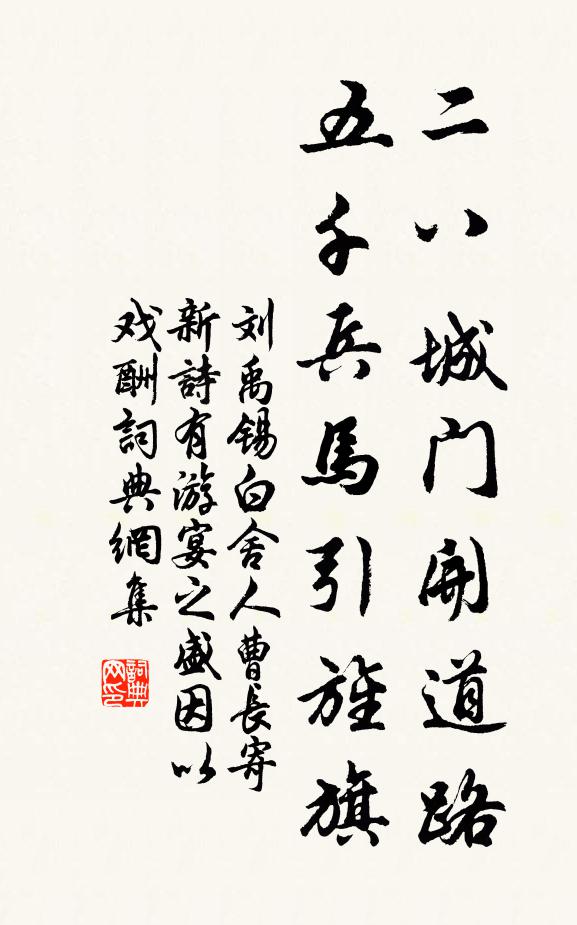 二八城门開道路
五千兵馬引旌旗
刘禹锡白舍人曹長寄
新詩有游宴之盛因以
戏酬詞典網集
詞典
网印